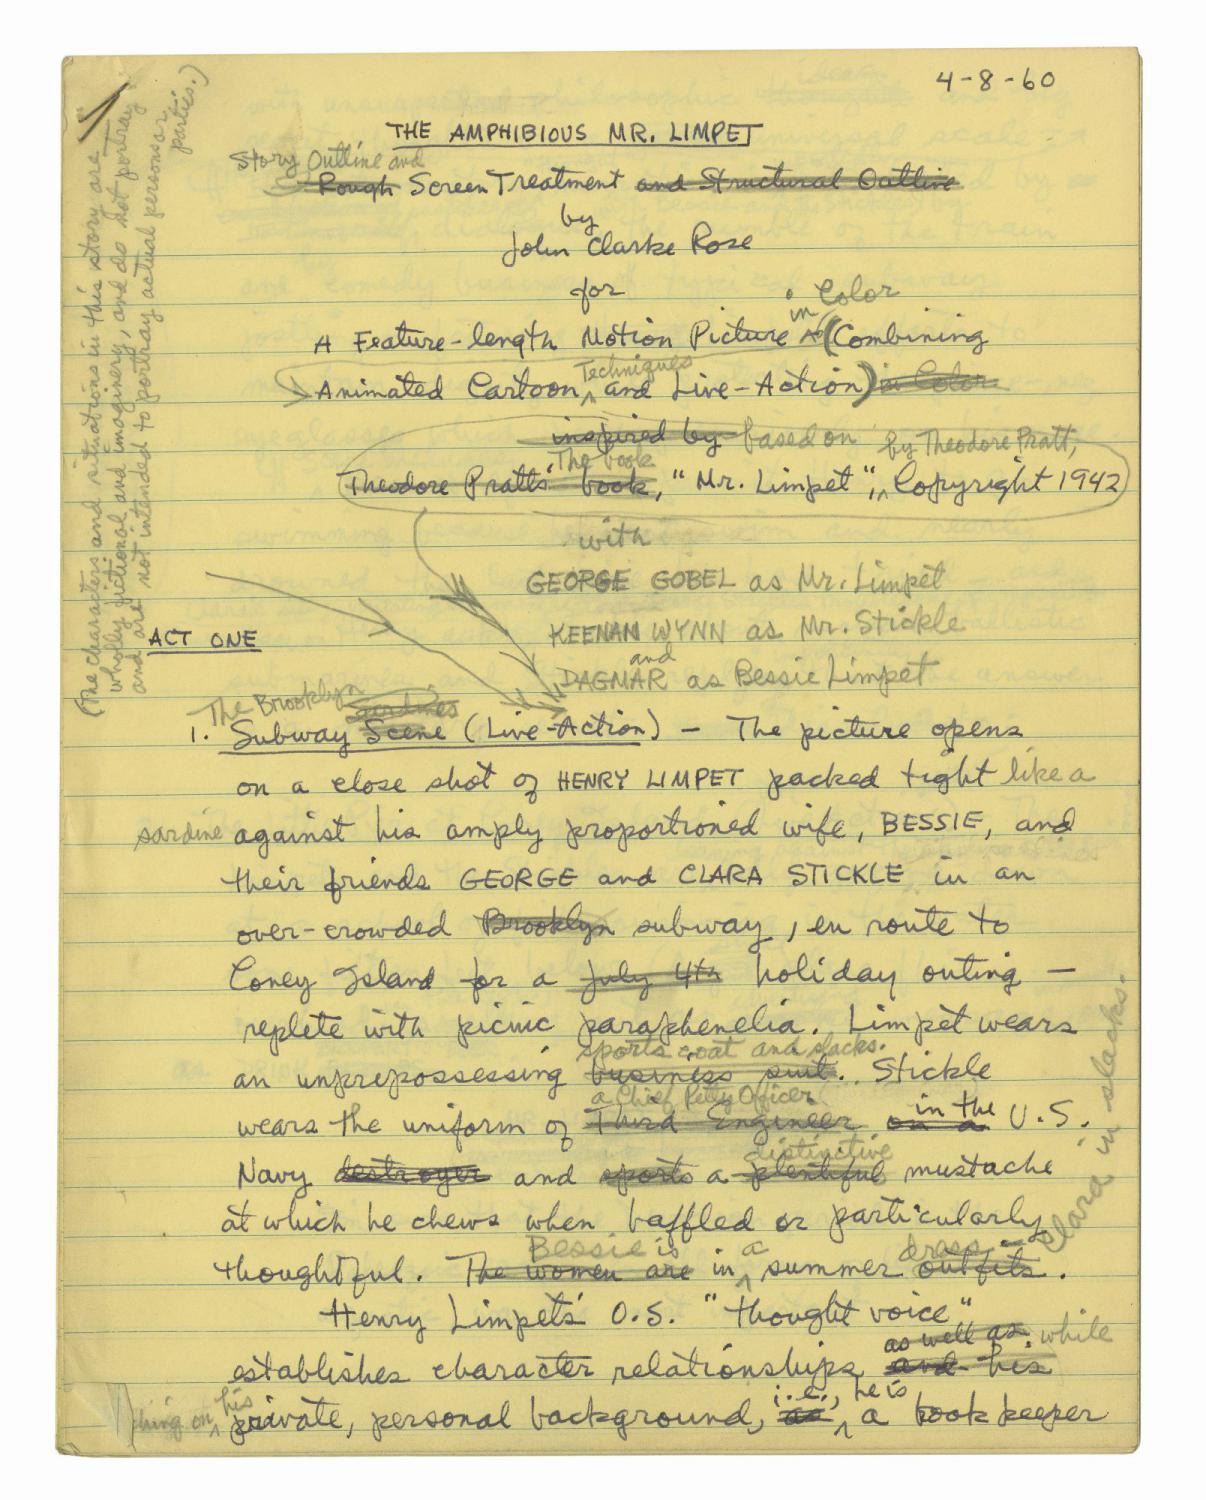 4-8-60
THE AMPHIBIOUS MR. LIMPET
Story Outline and
Rough Screen Treatment and Structural Outline
by
John Clarke Rose
for
in Color
A Feature-length Motion Picture (Combining
Techniques
Animated Cartoon and Live-Action) in Color
inspired by based on by Theodore Pratt,
The book
Theodore Pratt's book, "Mr. Limpet", Copyright 1942
with
GEORGE GOBEL as Mr. Limpet
KEENAN WYNN as Mr. Stickle
and
DAGMAR as Bessie Limpet
ACT ONE
The Brooklyn sardines
1. Subway Scene (Live-Action) - The picture opens
on a close shot of HENRY LIMPET packed tight like a
sardine against his amply proportioned wife, BESSIE, and
their friends GEORGE and CLARA STICKLE in an
over-crowded Brooklyn subway, en route to
Coney Island for a July 4th holiday outing -
replete with picnic paraphenelia. Limpet wears
sports coat and slacks.
an unprepossessing business suit. Stickle
a Chief Petty Officer
wears the uniform of Third Engineer on a in the U.S.
distinctive
Navy destroyer and sports a plentiful mustache
at which he chews when baffled or particularly
Bessie is a dress
thoughtful. The women are in summer outfits.
Clara in slacks.
Henry Limpet's O.S. "thought voice"
as well as while
establishes character relationships and his
his i.e., he is
private, personal background, as a bookkeeper
(The characters and situations in this story are
wholly fictional and imaginery, and do not portray
and are not intended to portray actual persons or
parties.)